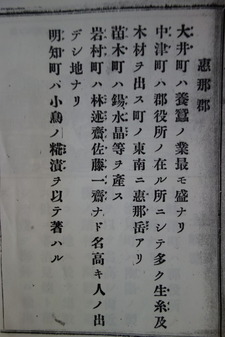 恵那郡
大井町ハ養蠶ノ業最モ盛ナリ
中津町ハ郡役所ノ在ル所ニシテ多ク生糸及
木材ヲ出ス町ノ東南ニ惠那岳アリ
苗木町ハ錫水晶等ヲ產ス
岩村町ハ林述齋佐藤一齋ナド名高キ人ノ出
デシ地ナリ
明知町ハ小鳥ノ糀漬ヲ以テ著ハル